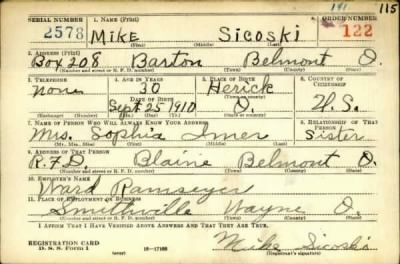 191 115
SERIAL NUMBER 1. NAME (Print) ORDER NUMBER
2578 Mike Sicoski 122
(First) (Middle) (Last)
2. ADDRESS (Print)
Box 208 Barton Belmont O.
(Number and street or R. F. D. number) (Town) (County) (State)
3. TELEPHONE 4. AGE IN YEARS 5. PLACE OF BIRTH 6. COUNTRY OF CITIZENSHIP
none 30 Herick
DATE OF BIRTH (Town or county)
Sept 25 1910 O. U.S.
(Exchange) (Number) (Mo.) (Day) (Yr.) (State or country)
7. NAME OF PERSON WHO WILL ALWAYS KNOW YOUR ADDRESS 8. RELATIONSHIP OF THAT PERSON
Mrs. Sophia Imer Sister
(Mr., Mrs., Miss) (First) (Middle) (Last)
9. ADDRESS OF THAT PERSON
R.F.D. Blaine Belmont O.
(Number and street or R. F. D. number) (Town) (County) (State)
10. EMPLOYER'S NAME
Ward Ramseyer
11. PLACE OF EMPLOYMENT OR BUSINESS
Smithville Wayne O.
(Number and street or R. F. D. number) (Town) (County) (State)
I AFFIRM THAT I HAVE VERIFIED ABOVE ANSWERS AND THAT THEY ARE TRUE.
REGISTRATION CARD
D. S. S. Form 1 16—17105 (over) Mike Sicoski
(Registrant's signature)